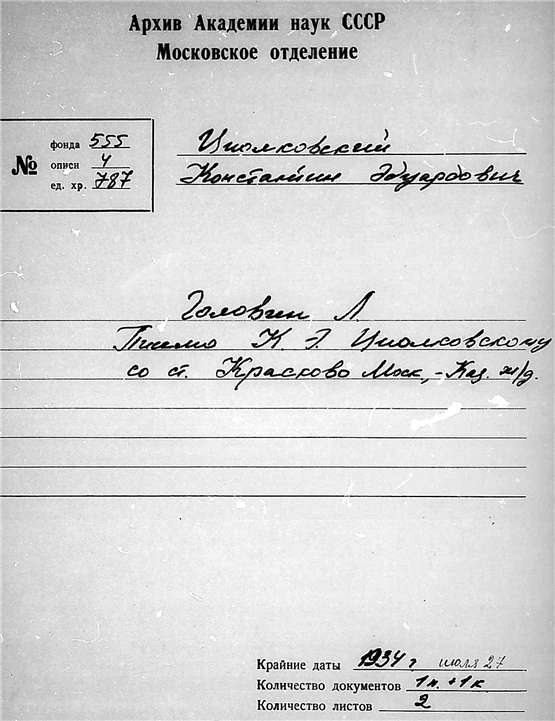 Архив Академии наук СССР
Московское отделение
№
фонда 555
описи 4
ед. хр. 787
Циолковский
Константин Эдуардович
Головин Л.
Письмо К. Э. Циолковскому
со ст. Красково Моск.-Каз. ж/д.
Крайние даты 1934 г. июля 27
Количество документов 1п.+1к
Количество листов 2